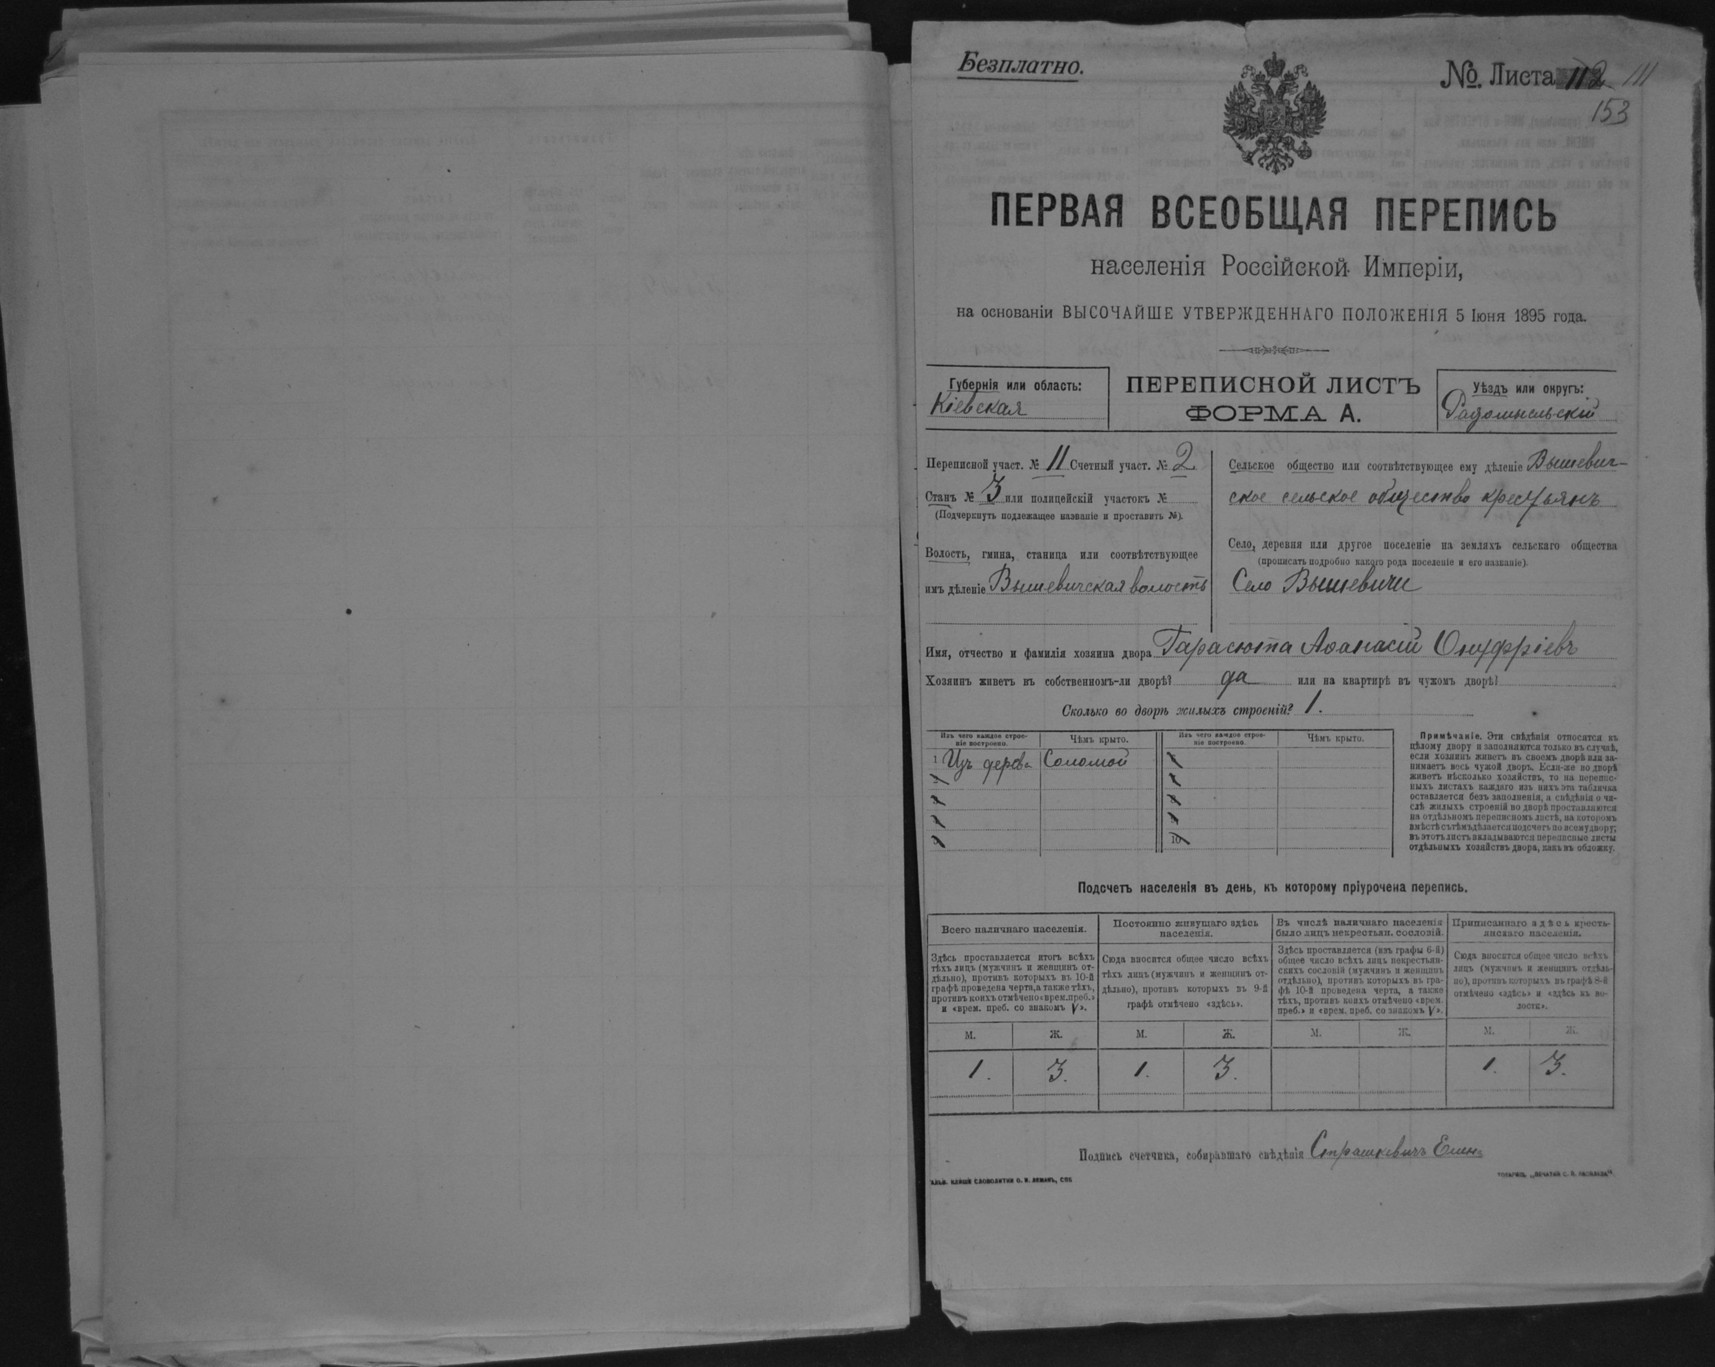 Безплатно.
№. Листа 112 111
153
ПЕРВАЯ ВСЕОБЩАЯ ПЕРЕПИСЬ
населенія Россійской Имперіи,
на основаніи ВЫСОЧАЙШЕ УТВЕРЖДЕННАГО ПОЛОЖЕНІЯ 5 Іюня 1895 года.
Губернія или область:
Кіевская
ПЕРЕПИСНОЙ ЛИСТЪ
ФОРМА А.
Уѣздъ или округъ:
Радомысльскій
Переписной участ. № 11 Счетный участ. № 2
Станъ № 3 или полицейскій участокъ №
(Подчеркнуть подлежащее названіе и проставить №).
Волость, гмина, станица или соотвѣтствующее
имъ дѣленіе Вышевичская волость
Сельское общество или соотвѣтствующее ему дѣленіе Вышевич-
ское сельское общество крестьянъ
Село, деревня или другое поселеніе на земляхъ сельскаго общества
(прописать подробно какого рода поселеніе и его названіе).
Село Вышевичи
Имя, отчество и фамилія хозяина двора Тарасюта Аѳанасій Онуфріевъ
Хозяинъ живетъ въ собственномъ-ли дворѣ? да или на квартирѣ въ чужомъ дворѣ?
Сколько во дворѣ жилыхъ строеній? 1.
Изъ чего каждое строе-
ніе построено.
Чѣмъ крыто.
1 Изъ дерева Соломой
Изъ чего каждое строе-
ніе построено.
Чѣмъ крыто.
10
Примѣчаніе. Эти свѣдѣнія относятся къ
цѣлому двору и заполняются только въ случаѣ,
если хозяинъ живетъ въ своемъ дворѣ или за-
нимаетъ весь чужой дворъ. Если-же во дворѣ
живетъ нѣсколько хозяйствъ, то на перепис-
ныхъ листахъ каждаго изъ нихъ эта табличка
оставляется безъ заполненія, а свѣдѣнія о чи-
слѣ жилыхъ строеній во дворѣ проставляются
на отдѣльномъ переписномъ листѣ, на которомъ
вмѣстѣ съ тѣмъ дѣлается подсчетъ по всему двору;
въ этотъ листъ вкладываются переписные листы
отдѣльныхъ хозяйствъ двора, какъ въ обложку.
Подсчетъ населенія въ день, къ которому пріурочена перепись.
Всего наличнаго населенія.
Здѣсь проставляется итогъ всѣхъ
тѣхъ лицъ (мужчинъ и женщинъ от-
дѣльно), противъ которыхъ въ 10-й
графѣ проведена черта, а также тѣхъ,
противъ коихъ отмѣчено «врем. преб.»
и «врем. преб. со знакомъ V».
М. Ж.
1. 3.
Постоянно живущаго здѣсь
населенія.
Сюда вносится общее число всѣхъ
тѣхъ лицъ (мужчинъ и женщинъ от-
дѣльно), противъ которыхъ въ 9-й
графѣ отмѣчено «здѣсь».
М. Ж.
1. 3.
Въ числѣ наличнаго населенія
было лицъ некрестьян. сословій.
Здѣсь проставляется (изъ графы 6-й)
общее число всѣхъ лицъ некрестьян-
скихъ сословій (мужчинъ и женщинъ
отдѣльно), противъ которыхъ въ гра-
фѣ 10-й проведена черта, а также
тѣхъ, противъ коихъ отмѣчено «врем.
преб.» и «врем. преб. со знакомъ V».
М. Ж.
Приписаннаго здѣсь кресть-
янскаго населенія.
Сюда вносится общее число всѣхъ
лицъ (мужчинъ и женщинъ отдѣль-
но), противъ которыхъ въ графѣ 8-й
отмѣчено «здѣсь» и «здѣсь въ во-
лости».
М. Ж.
1. 3.
Подпись счетчика, собиравшаго свѣдѣнія Страшкевичъ
СЛОВОЛИТНИ О. И. ЛЕМАНЪ, СПБ